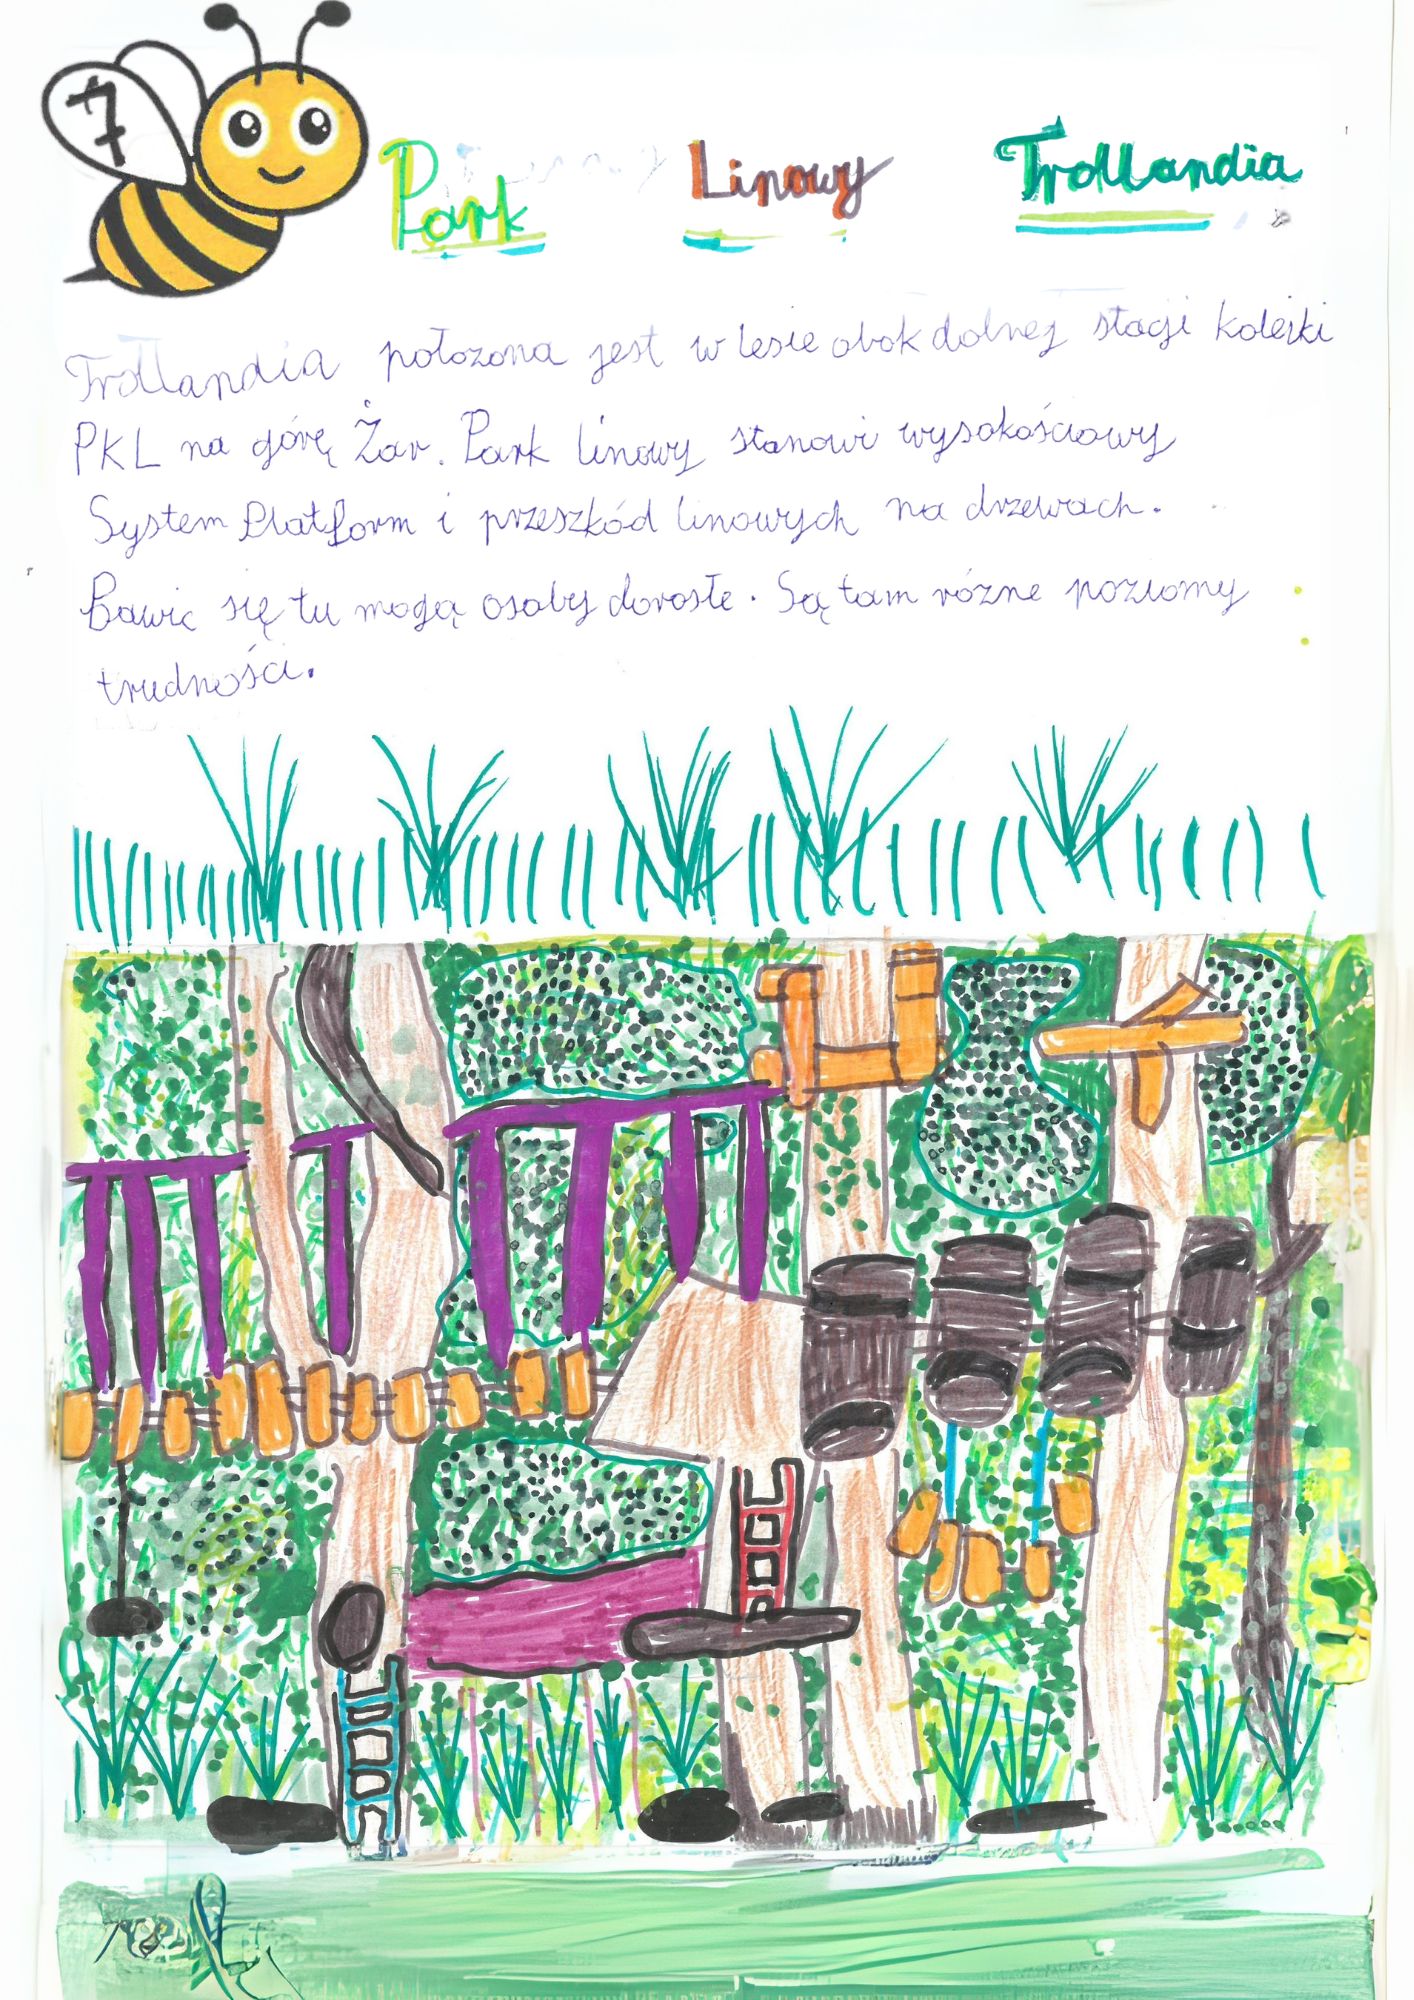 7
Park Linowy Trollandia
Trollandia położona jest w lesie obok dolnej stacji kolejki
PKL na górę Żar. Park linowy stanowi wysokościowy
System Platform i przeszkód linowych na drzewach.
Bawić się tu mogą osoby dorosłe. Są tam różne poziomy
trudności.